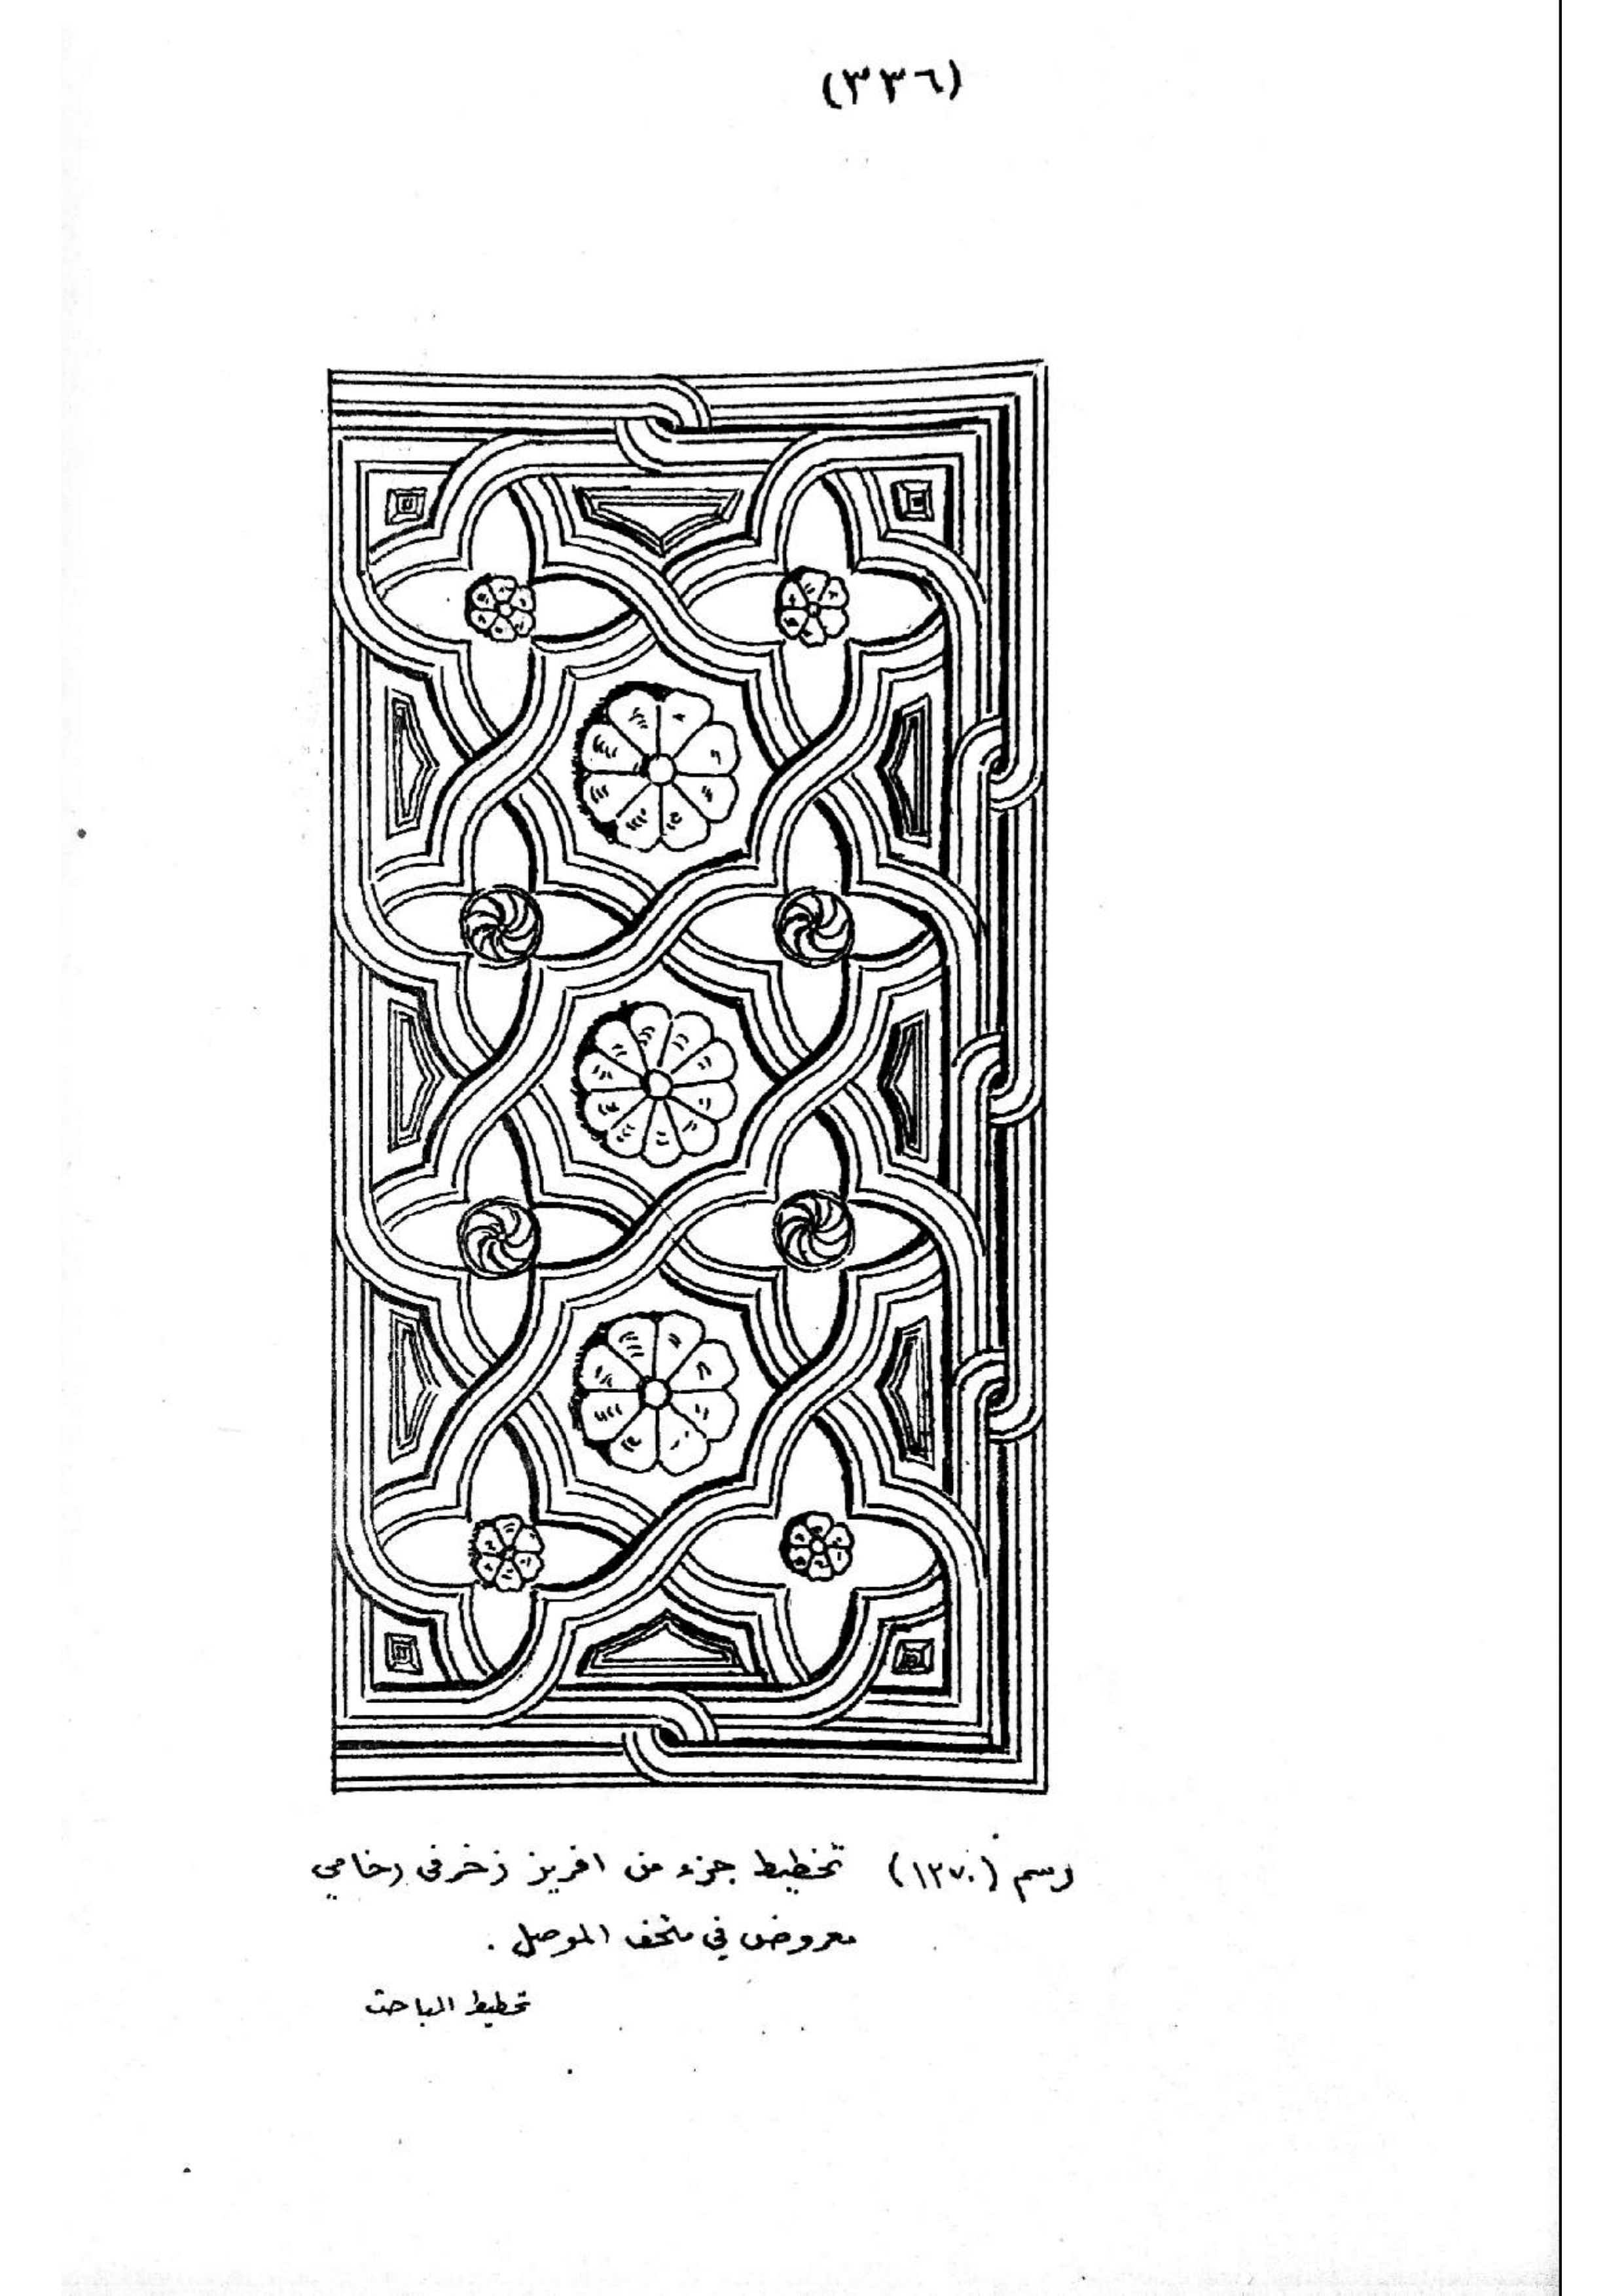 (٣٣٦)
رسم (١٢٧٠) تخطيط جزء من افريز زخرفي رخامي
معروض في متحف الموصل .
تخطيط الباحث